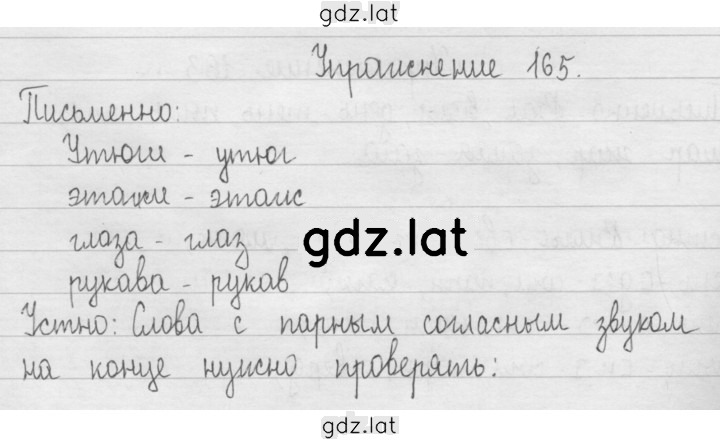 gdz.lat
Упражнение 165.
Письменно:
Утюги - утюг
этажи - этаж
глаза - глаз
gdz.lat
рукава - рукав
Устно: Слова с парным согласным звуком
на конце нужно проверять:
gdz.lat